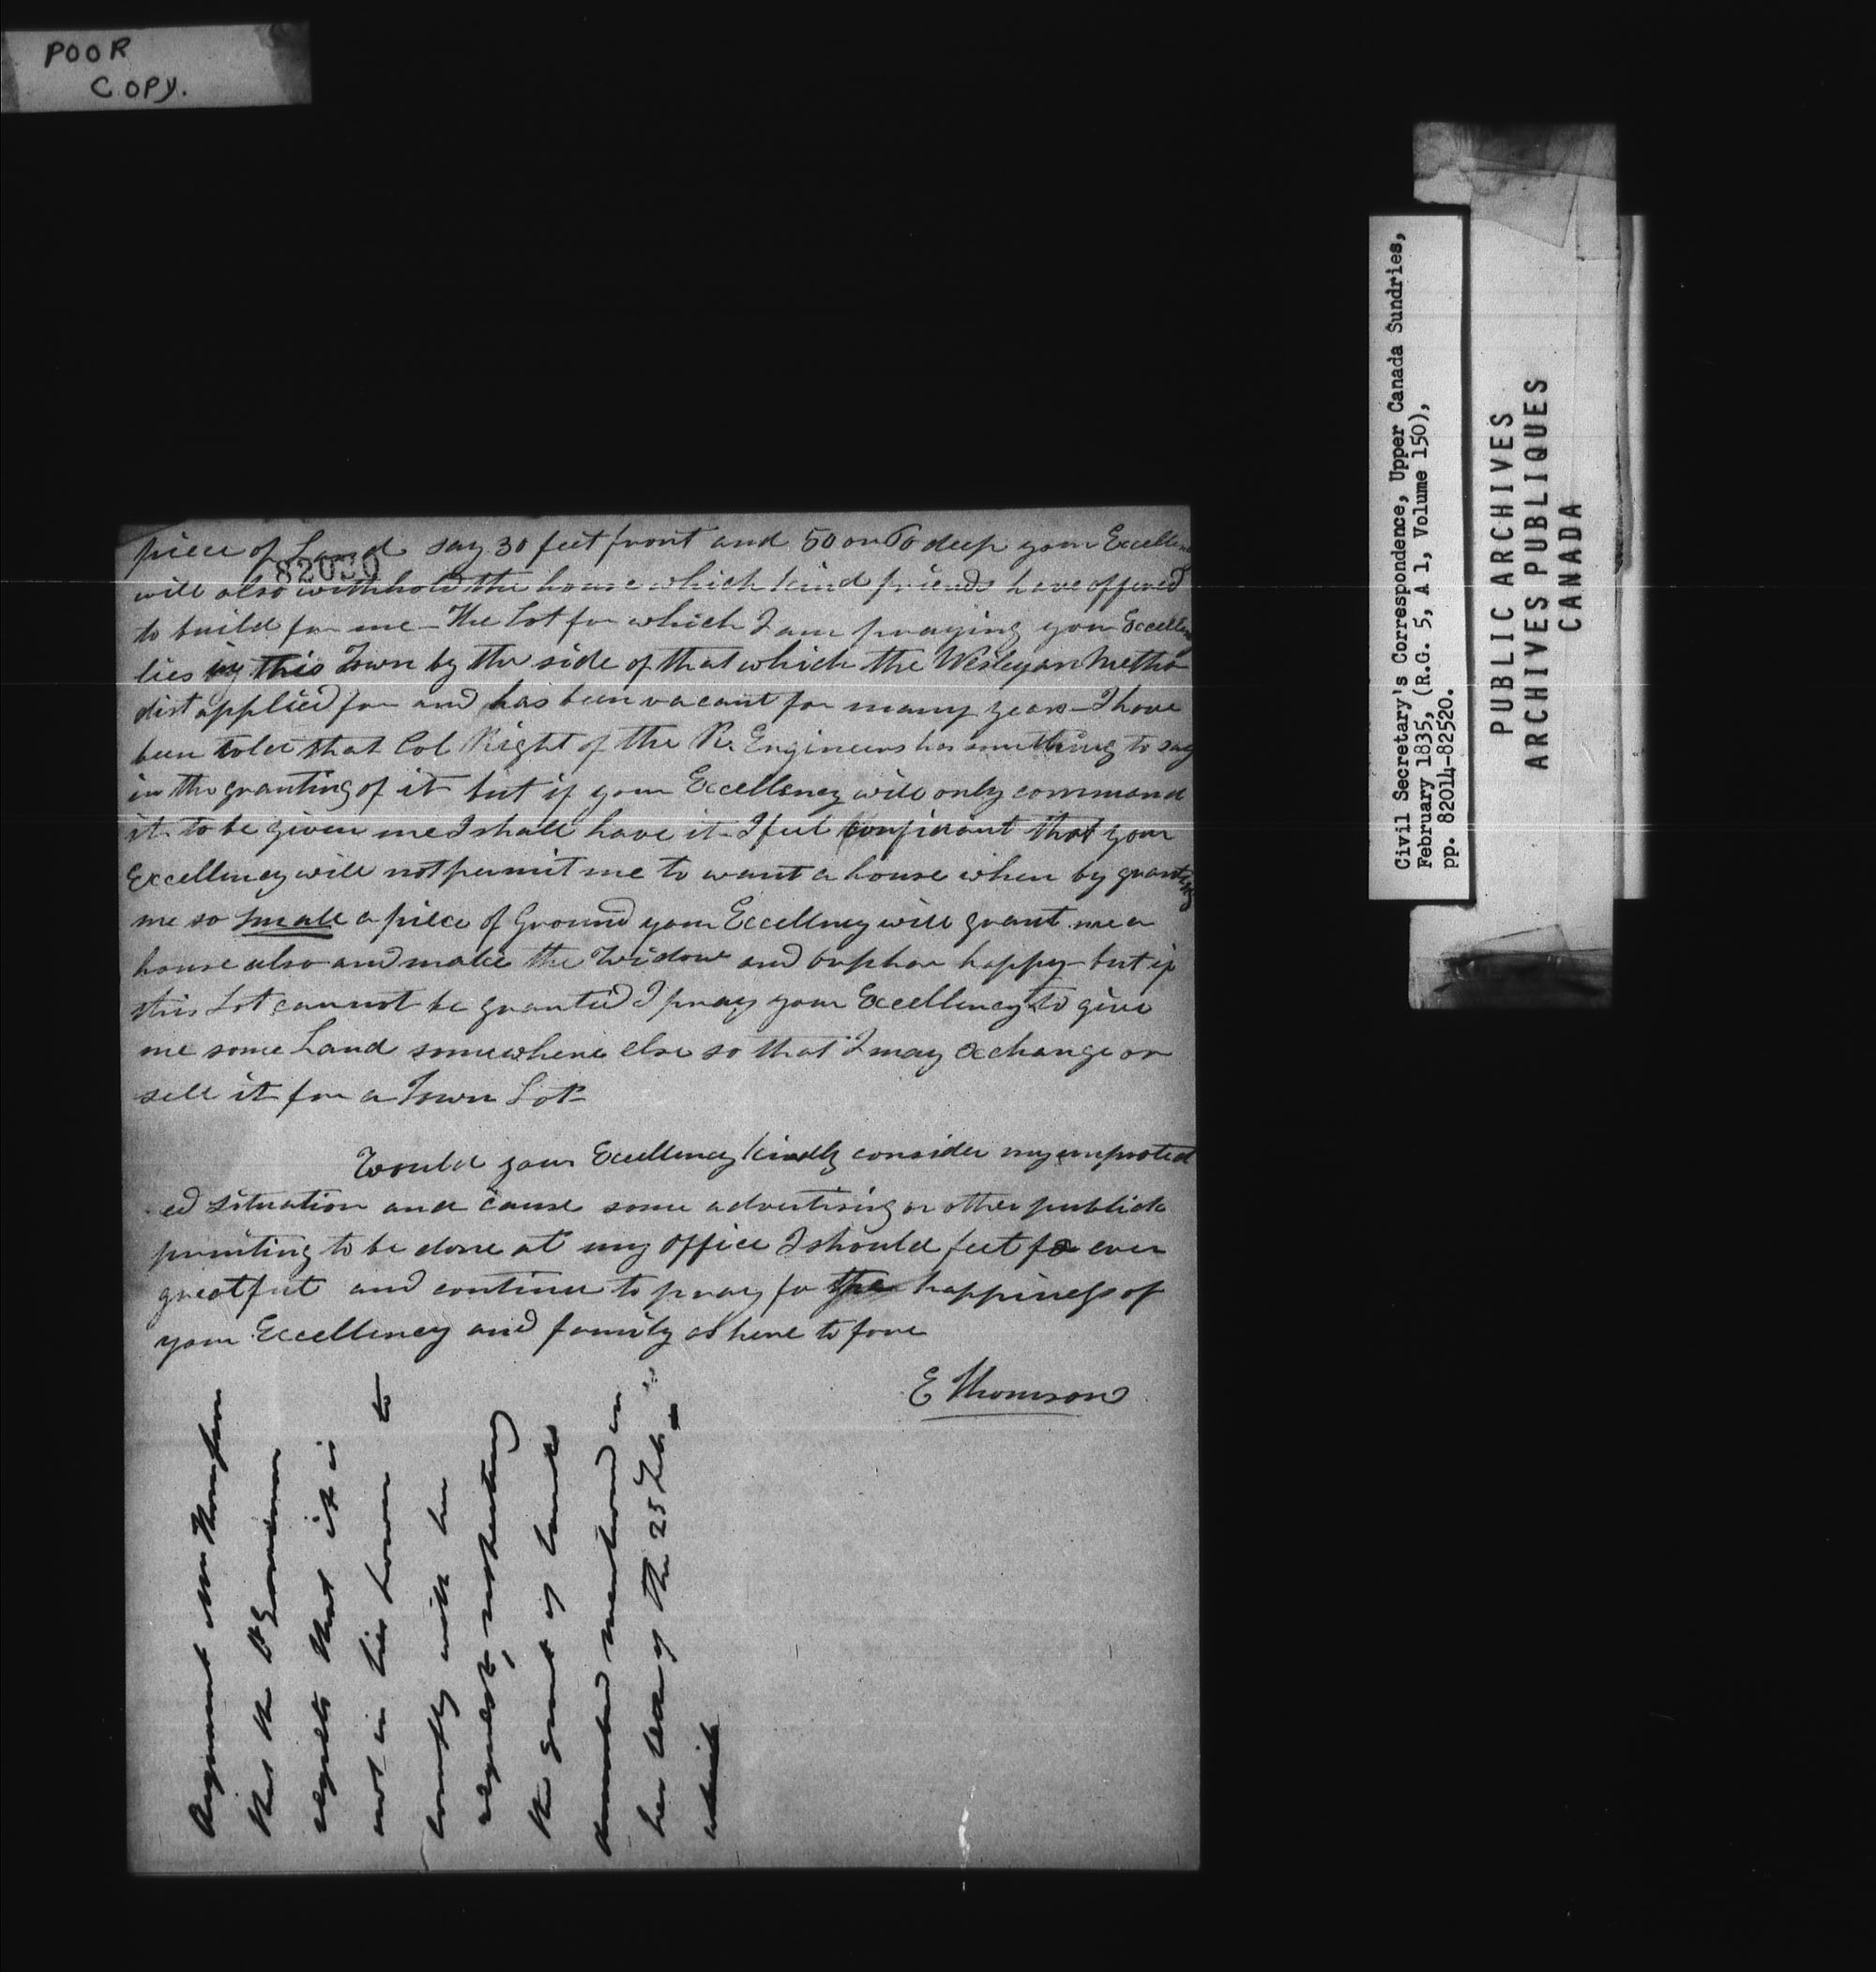 POOR
COPY.
piece of Land say 30 feet front and 50 or 60 deep your Excellen
82030
will also withhold the house which kind friends have offered
to build for me - The Lot for which I am praying your Excellen
lies in this Town by the side of that which the Wesleyan Metho
dist applied for and has been vacant for many years - I have
been told that Col Right of the R. Engineers has something to say
in the granting of it but if your Excellency will only command
it to be given me I shall have it - I feel confidant that your
Excellency will not permit me to want a house when by granting
me so small a piece of Ground your Excellency will grant me a
house also and make the Widow and orphan happy - but if
this Lot cannot be granted I pray your Excellency to give
me some Land somewhere else so that I may exchange or
sell it for a Town Lot -
Would your Excellency kindly consider my unprotect
ed situation and cause some advertising or other publick
printing to be done at my office I should feel for ever
greatful and continue to pray for the happiness of
your Excellency and family as here to fore
E Thomson
Acquaint Mrs Thompson
that the Lt Governor
regrets that it is
not in his power to
comply with her
request, respecting
the grant of land
mentioned in
her letter of the 25 Feb.
Civil Secretary's Correspondence, Upper Canada Sundries,
February 1835, (R.G. 5, A 1, Volume 150),
pp. 82014-82520.
PUBLIC ARCHIVES
ARCHIVES PUBLIQUES
CANADA